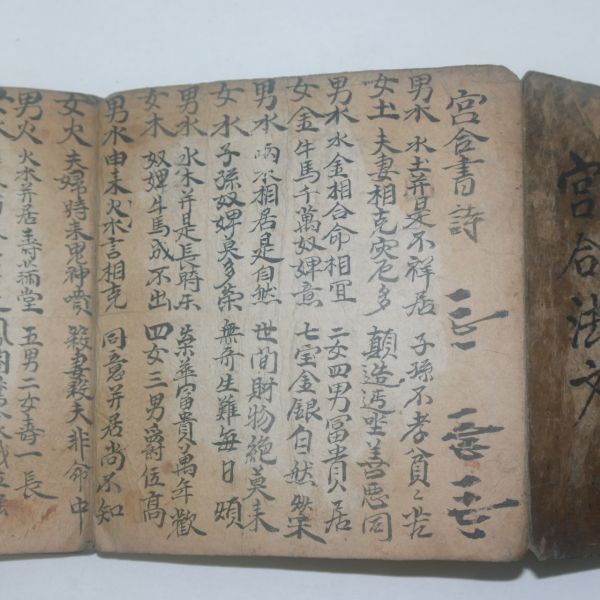 宮合法文
宮合書詩
男水 水土并是不祥居 子孫不孝貧〻苦
女土 夫妻相克灾厄多 顛造逆坐善悪同
男水 水金相合命相宜 二女四男冨貴居
女金 牛馬千萬奴婢意 七宝金銀自然荣
男水 兩水相居是自然 世間財物絶莫来
女水 子孫奴婢莫多荣 無奇生難每日煩
男水 水木并是長時乐 荣華富貴萬年歡
女木 奴婢牛馬成不出 四女三男爵位高
男水 由来火水言相克 同意并居尚不知
女火 夫婦時来鬼神嘖 殺妻殺夫非命中
男火 火水并居壽滿堂 五男二女壽一長